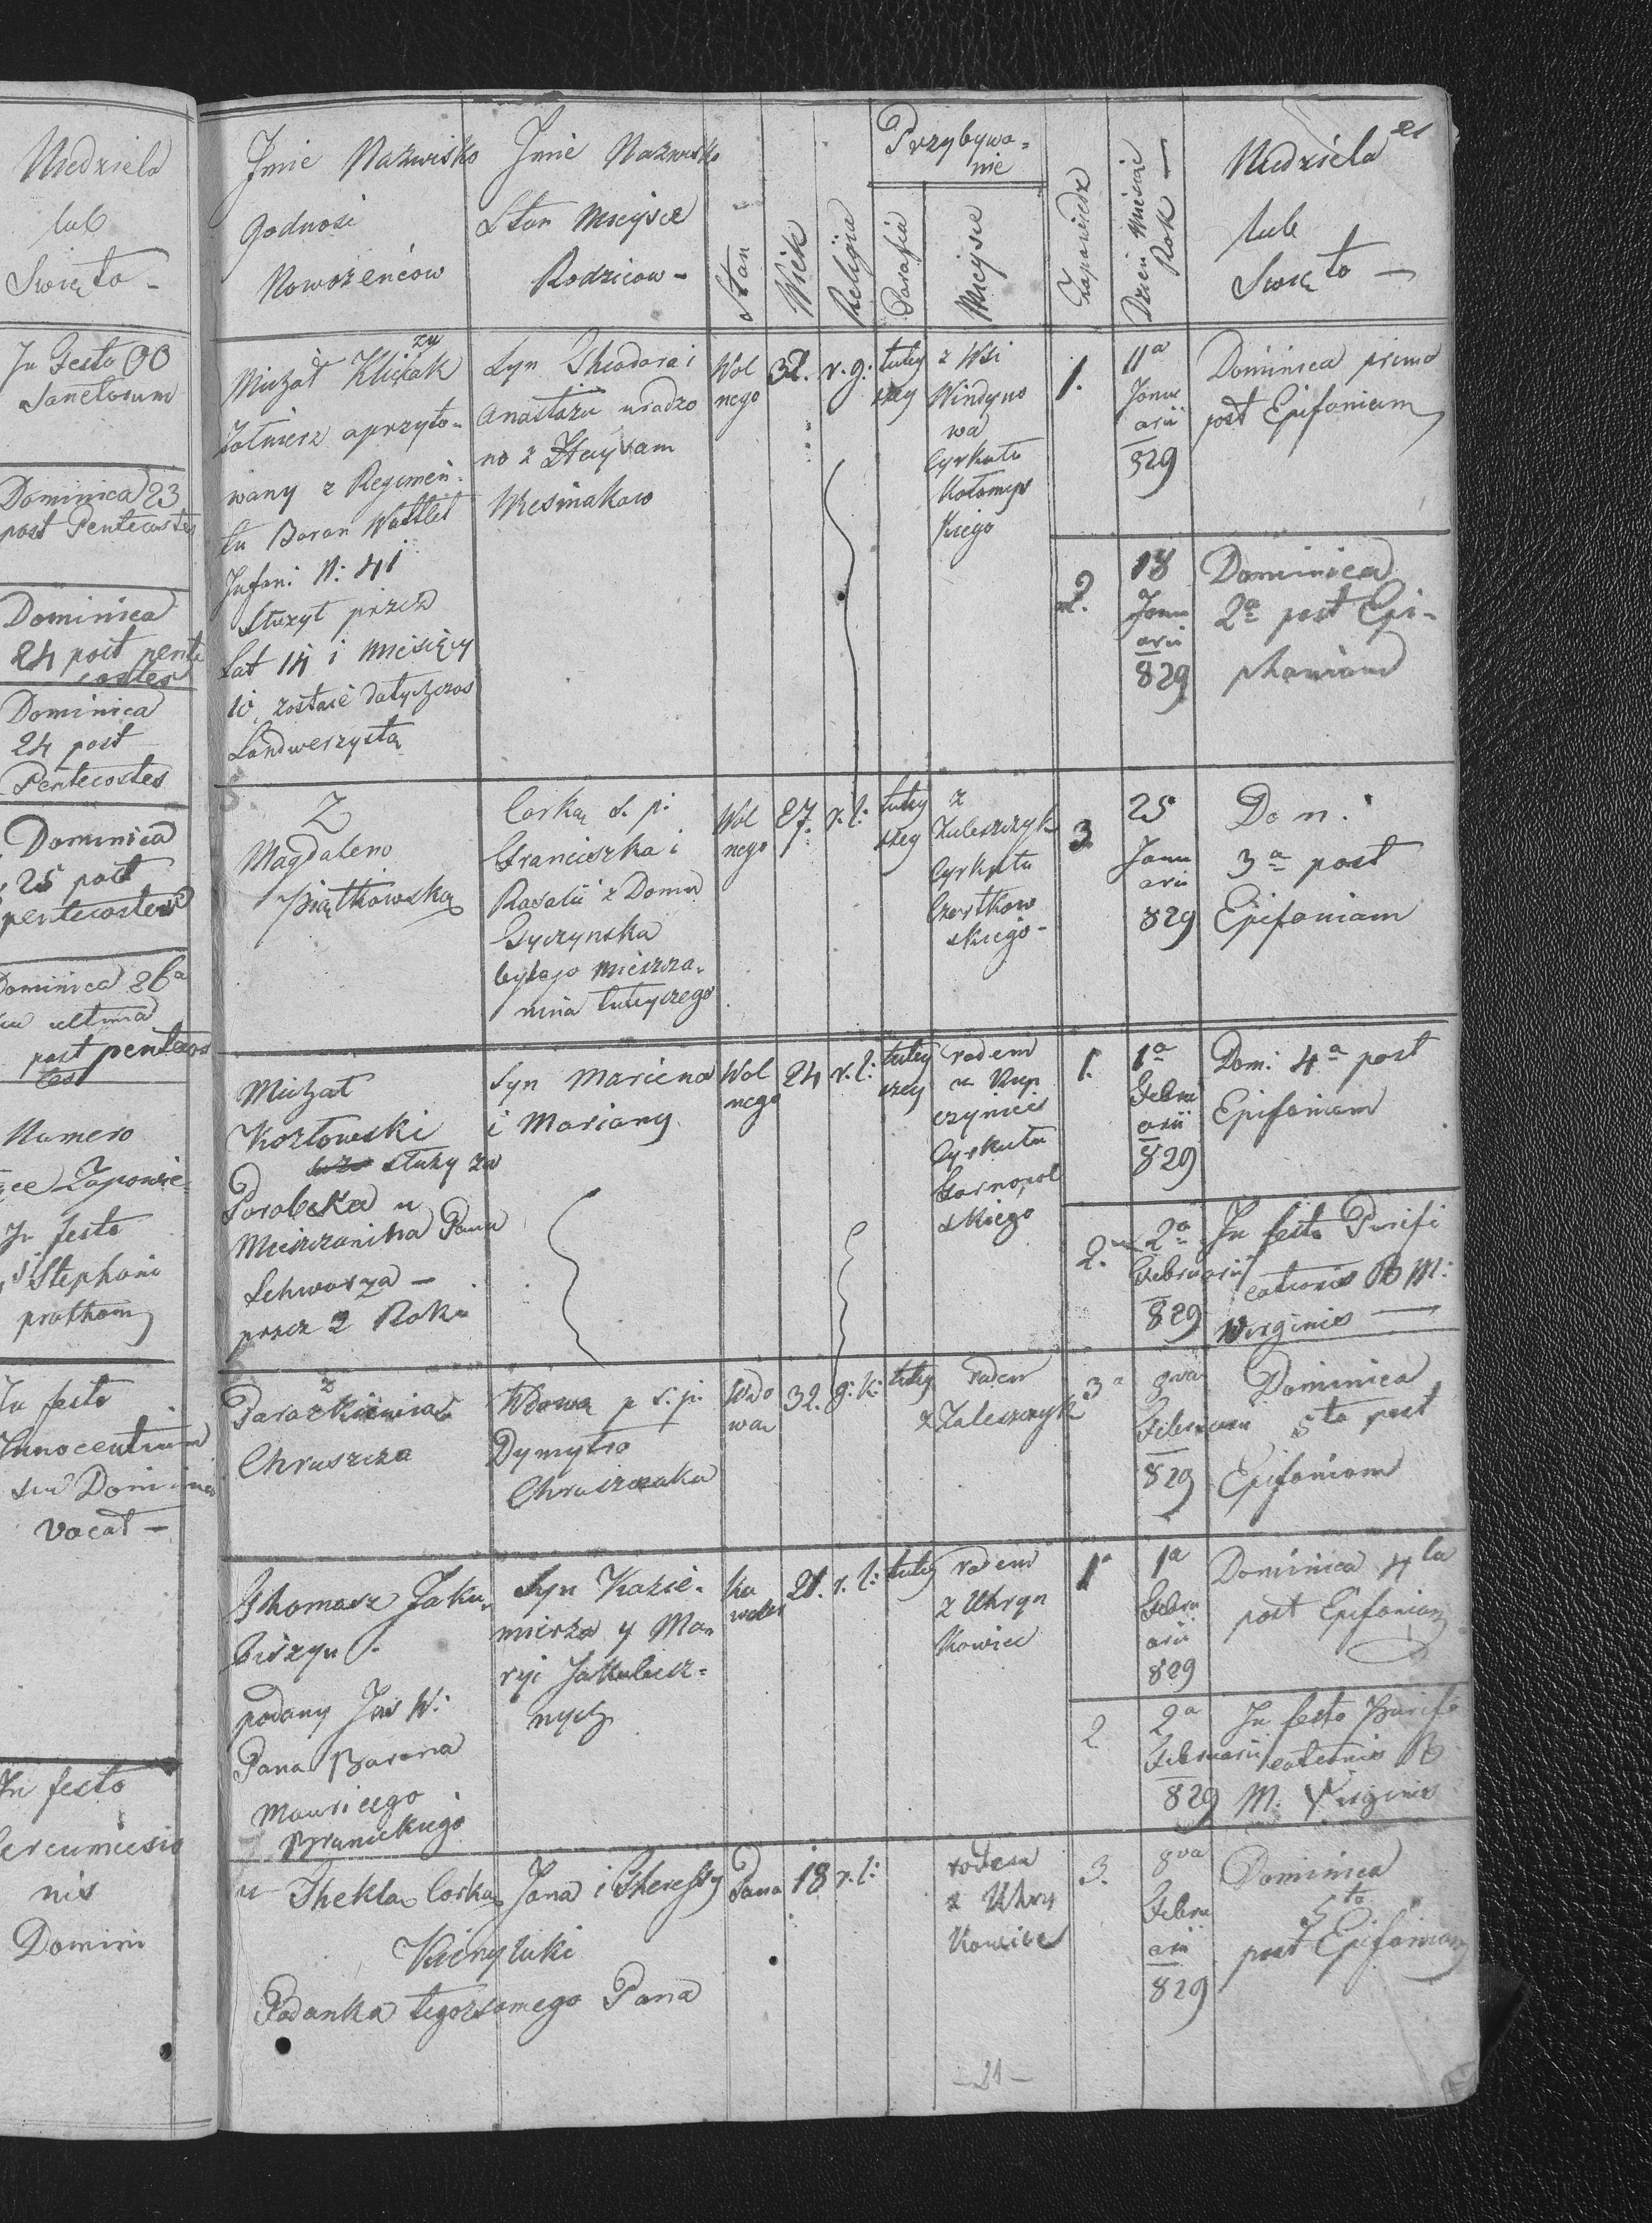 Niedziela
lub
Swięto -
In Festo OO
Sanctorum
Dominica 23
post Pentecostes
Dominica
24 post pente
costes
Dominica
24 post
Pentecostes
Dominica
25 post
pentecostes
Dominica 26a
ultima
post pentecos
tes
Numero
Zapowie
In festo
S Stephani
protham
In festo
Innocentium
seu Dominica
vacat -
In festo
Circumcisio
nis
Domini
Jmie Nazwisko
Godnosi
Nowożenców
Jmie Nazwisko
Stan Mieysce
Rodzicow -
Stan
Wiek
Religia
Przybywa=
nie
Parafia
Mieysce
Zapowiedz
Dzień Miesiąc
Rok -
Niedziela
lub
Swięto -
21
Michał Kliczak
żołnierz
wany z Regimen
tu Baron Wattlet
Infan: N: 41
Służył przez
Lat 14 i Miesięcy
10, zostaie dotychczas
Landwerzystą
Syn Theodora i
Anastazii urodzo
no z
Wol
nego
32.
r. g:
tutey
szey
z Wsi
wa
Cyrkułu
Kołomys
kiego
1.
11a
Janu
arii
829
Dominica prima
post Epifaniam
2.
18
Janu
arii
829
Dominica
2a post Epi-
phaniam
Z
Magdaleno
Piątkowską
Corką S. p:
Franciszka i
Rosalii z Domu
Gyczynska
byłego Mieszcza
nina tuteyszego
Wol
nego
27.
r. l:
tutey
szey
z
Zaleszczyk
Cyrkułu
Czortkow
skiego -
3
25
Janu
arii
829
Dom.
3a post
Epifaniam
Michał
Kozłowski
Służy za
Parobeka u
Mieszczanina Pana
Schwarza -
przez 2 Roki
Syn Marcina
i Mariany
Wol
nego
24
r. l:
tutey
szey
rodem
z Kup
czyniec
Cyrkułu
Tarnopol
skiego
1.
1a
Febru
arii
829
Dom: 4a post
Epifaniam
2.
2a
Februarii
829
In festo Purifi
cationis B M:
Virginis -
z
Chruszcza
Wdowa p S. p:
Dymytro
Chruszczaku
Wdo
wa
32.
g. k:
tutey
rodem
z Zaleszczyk
3a
8va
Februarii
829
Dominica
5ta post
Epifaniam
Thomasz Jaku
biszyn
podany Jas W:
Pana Barona
Mauricego
Brunickiego
Syn Kazie-
mierza y Ma
ryi Jakubisz=
nych
Ka
waler
21.
r. l:
tutey
rodem
z Uhryn
kowiec
1a
1a
Febru
arii
829
Dominica 4ta
post Epifaniam
2
2a
Februarii
829
In festo Purifi
cationis B
M. Virginis
Thekla Corka Jana i Theressy
Podanka tegożsamego Pana
Pana
18
r. l:
rodem
z Uhry
kowiec
3.
8va
Febru
arii
829
Dominica
5ta
post Epifaniam
- 21 -